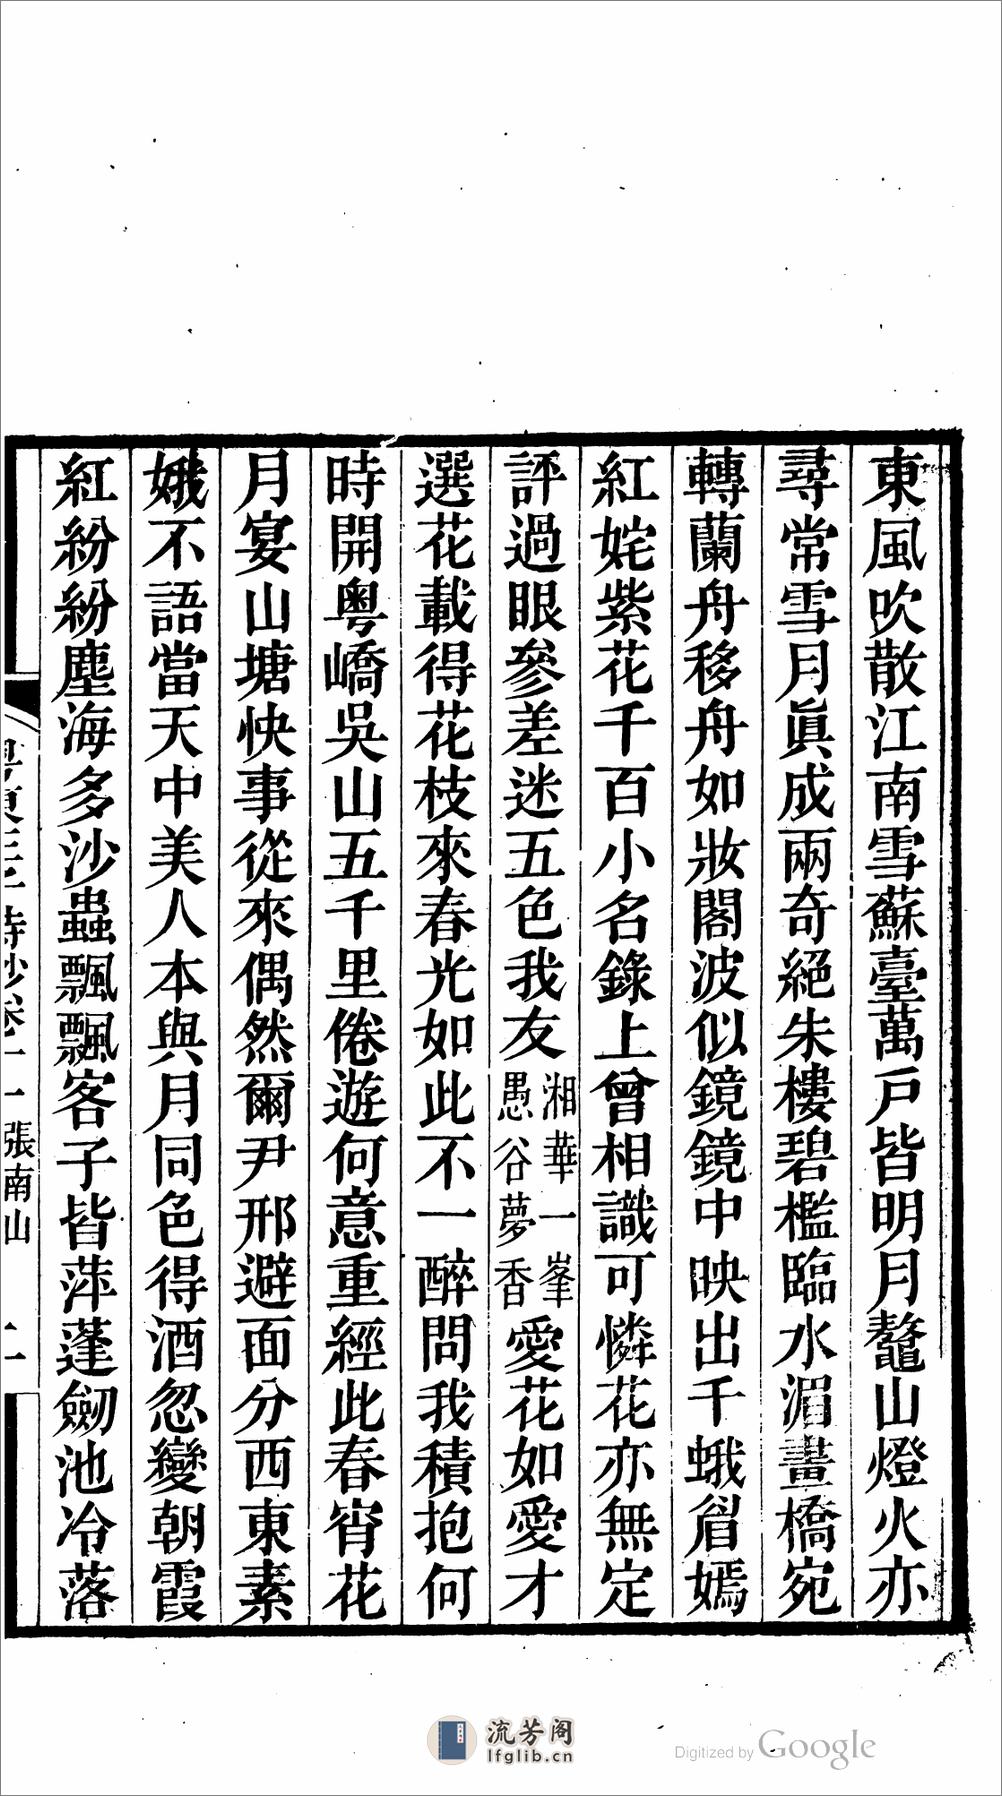 東風吹散江南雪蘇臺萬戶皆明月鼇山燈火亦
尋常雪月眞成兩奇絕朱樓碧檻臨水湄畫橋宛
轉蘭舟移舟如妝閣波似鏡鏡中映出千蛾眉嫣
紅姹紫花千百小名錄上曾相識可憐花亦無定
評過眼參差迷五色我友湘華一峯愚谷夢香愛花如愛才
選花載得花枝來春光如此不一醉問我積抱何
時開粤嶠吳山五千里倦遊何意重經此春宵花
月宴山塘快事從來偶然爾尹邢避面分西東素
娥不語當天中美人本與月同色得酒忽變朝霞
紅紛紛塵海多沙蟲飄飄客子皆萍蓬劒池冷落
粤東三子詩鈔卷一 張南山 二
流芳阁
lfglib.cn
Digitized by Google